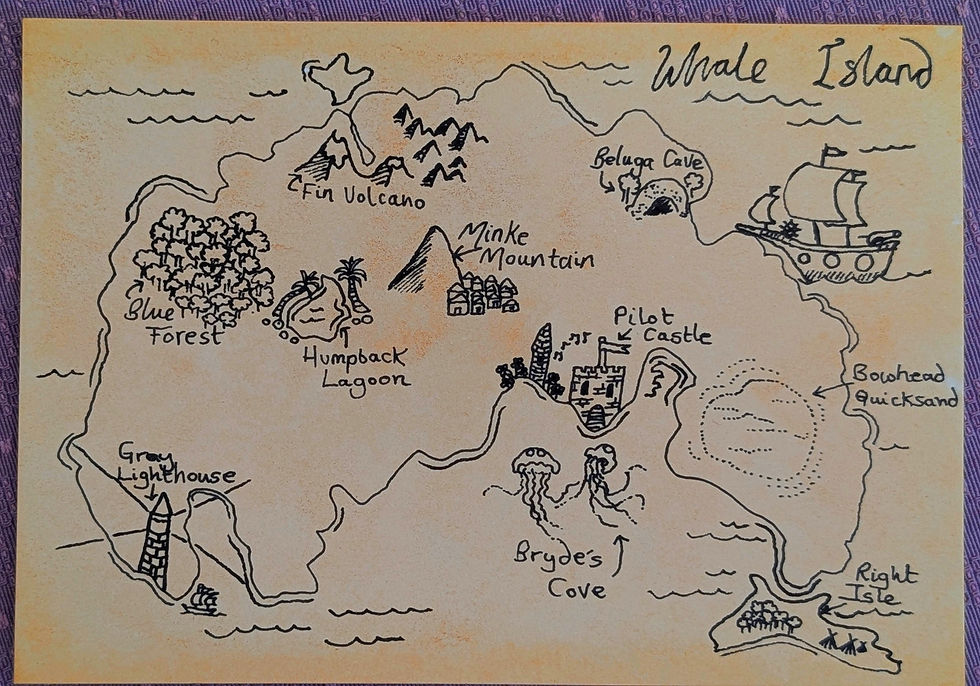 Whale Island
Beluga Cave
Fin Volcano
Minke
Mountain
Blue
Forest
Humpback
Lagoon
Pilot
Castle
Bowhead
Quicksand
Gray
Lighthouse
Bryde's
Cove
Right
Isle